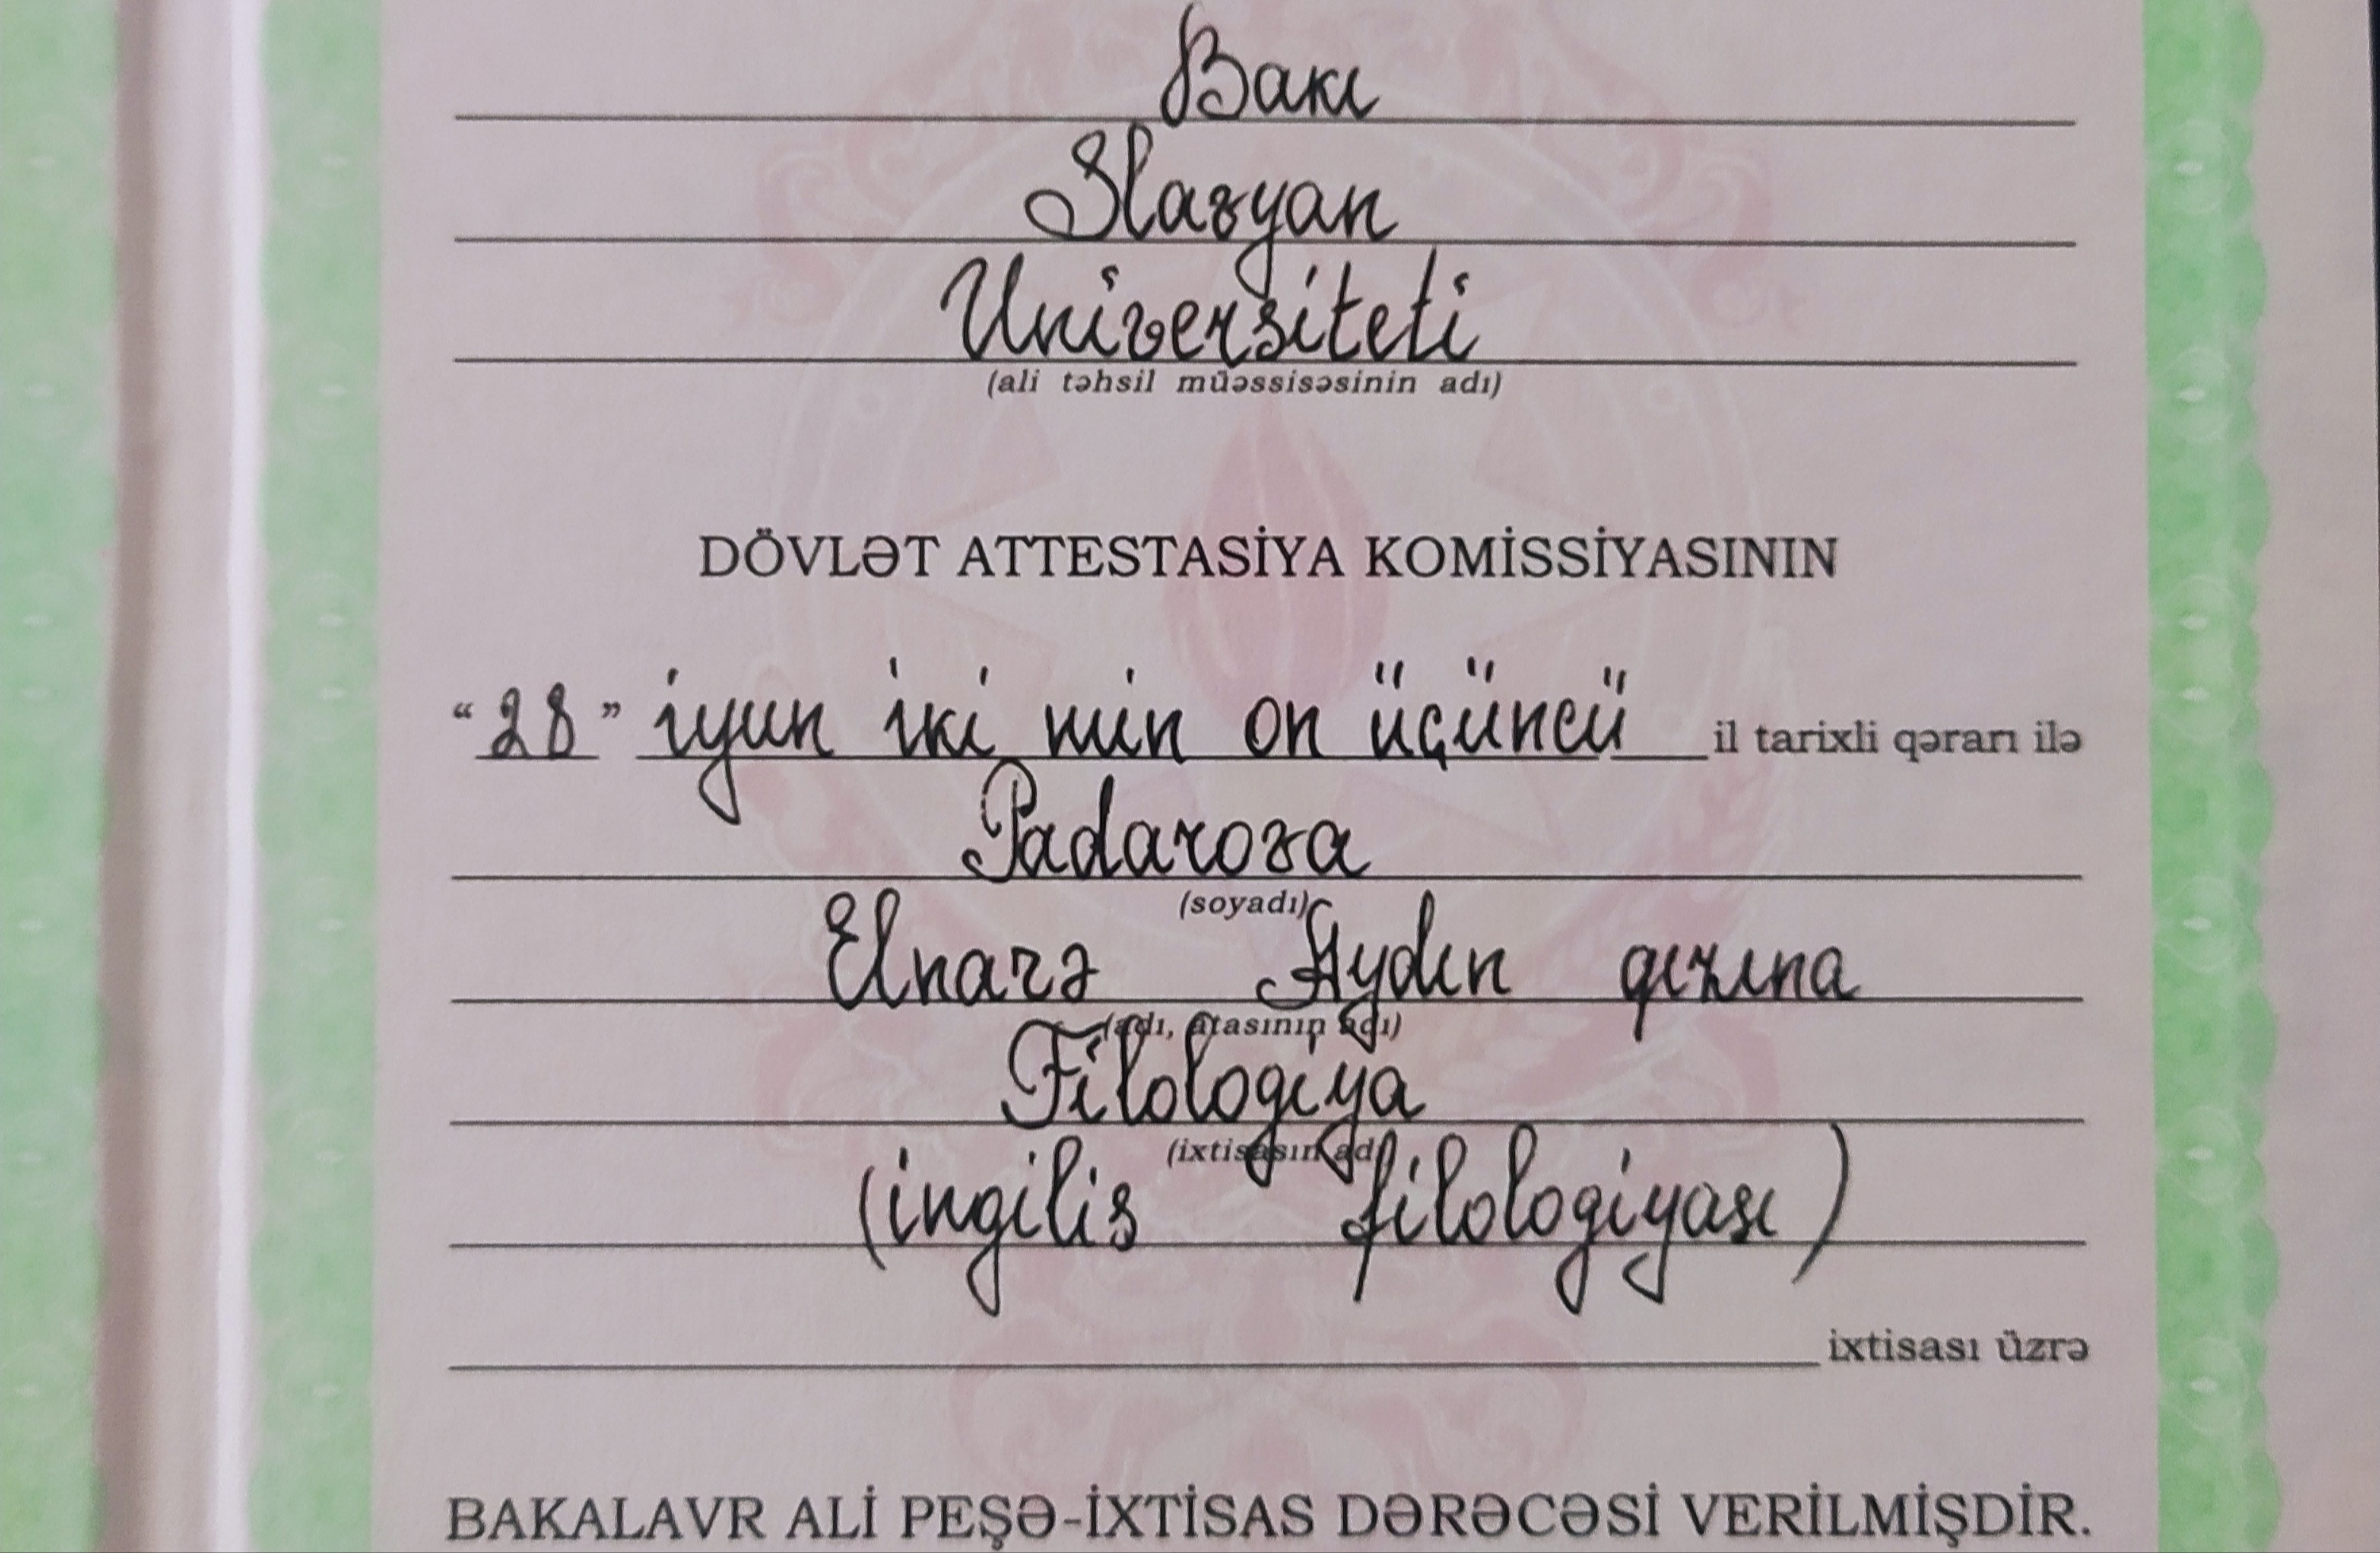 Bakı
Slavyan
Universiteti
(ali təhsil müəssisəsinin adı)
DÖVLƏT ATTESTASİYA KOMİSSİYASININ
“28” iyun iki min on üçüncü il tarixli qərarı ilə
Padarova
(soyadı)
Elnarə Aydın qızına
(adı, atasının adı)
Filologiya
(ixtisasın adı)
(ingilis filologiyası)
ixtisası üzrə
BAKALAVR ALİ PEŞƏ-İXTİSAS DƏRƏCƏSİ VERİLMİŞDİR.